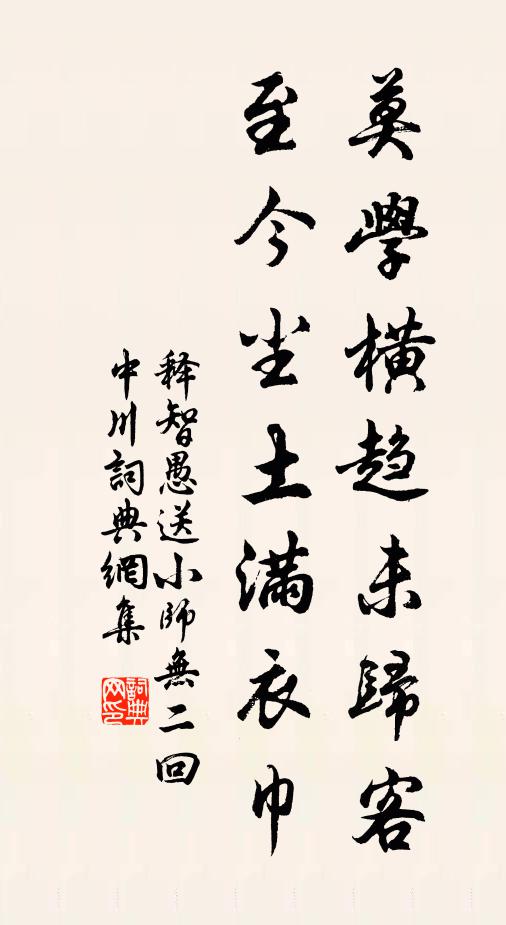 莫學橫趨未歸客
至今尘土滿衣巾
释智愚送小師無二回
中川詞典網集
詞典网印